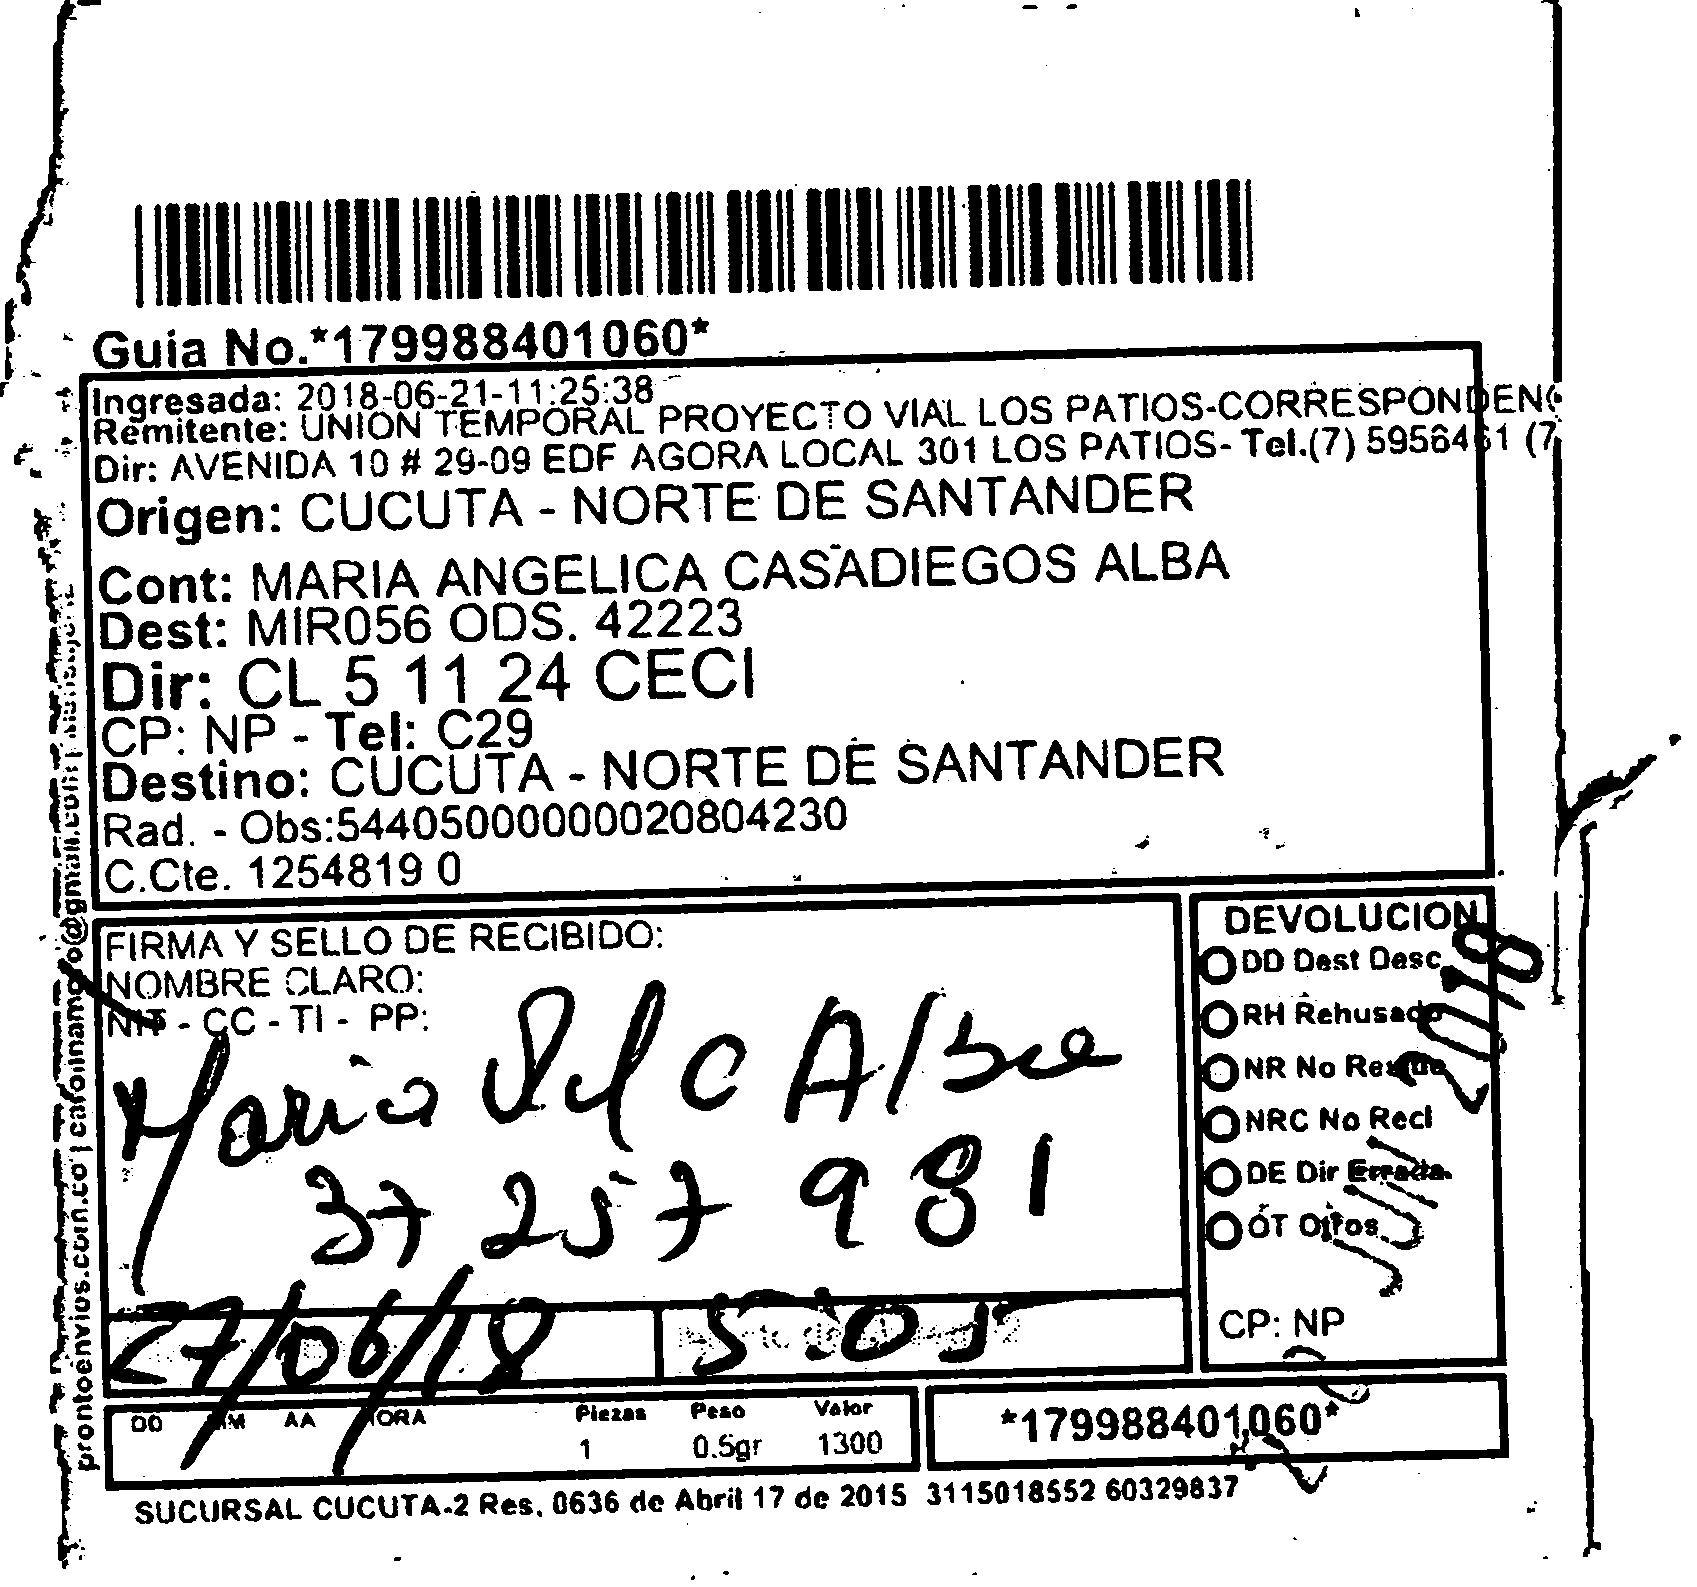 Guia No.*179988401060*
Ingresada: 2018-06-21-11:25:38
Remitente: UNION TEMPORAL PROYECTO VIAL LOS PATIOS-CORRESPONDENC
Dir: AVENIDA 10 # 29-09 EDF AGORA LOCAL 301 LOS PATIOS- Tel.(7) 5956461 (7
Origen: CUCUTA - NORTE DE SANTANDER
Cont: MARIA ANGELICA CASADIEGOS ALBA
Dest: MIR056 ODS. 42223
Dir: CL 5 11 24 CECI
CP: NP - Tel: C29
Destino: CUCUTA - NORTE DE SANTANDER
Rad. - Obs:544050000000020804230
C.Cte. 1254819 0
FIRMA Y SELLO DE RECIBIDO:
NOMBRE CLARO:
NIT - CC - TI - PP:
Maria del C Alba
37 257 981
27/06/18 5:05
DD MM AA HORA
Piezas Peso Valor
1 0.5gr 1300
DEVOLUCION
DD Dest Desc
RH Rehusado
NR No Reside
NRC No Recl
DE Dir Errada
OT Otros
CP: NP
*179988401060*
SUCURSAL CUCUTA-2 Res. 0636 de Abril 17 de 2015 3115018552 60329837